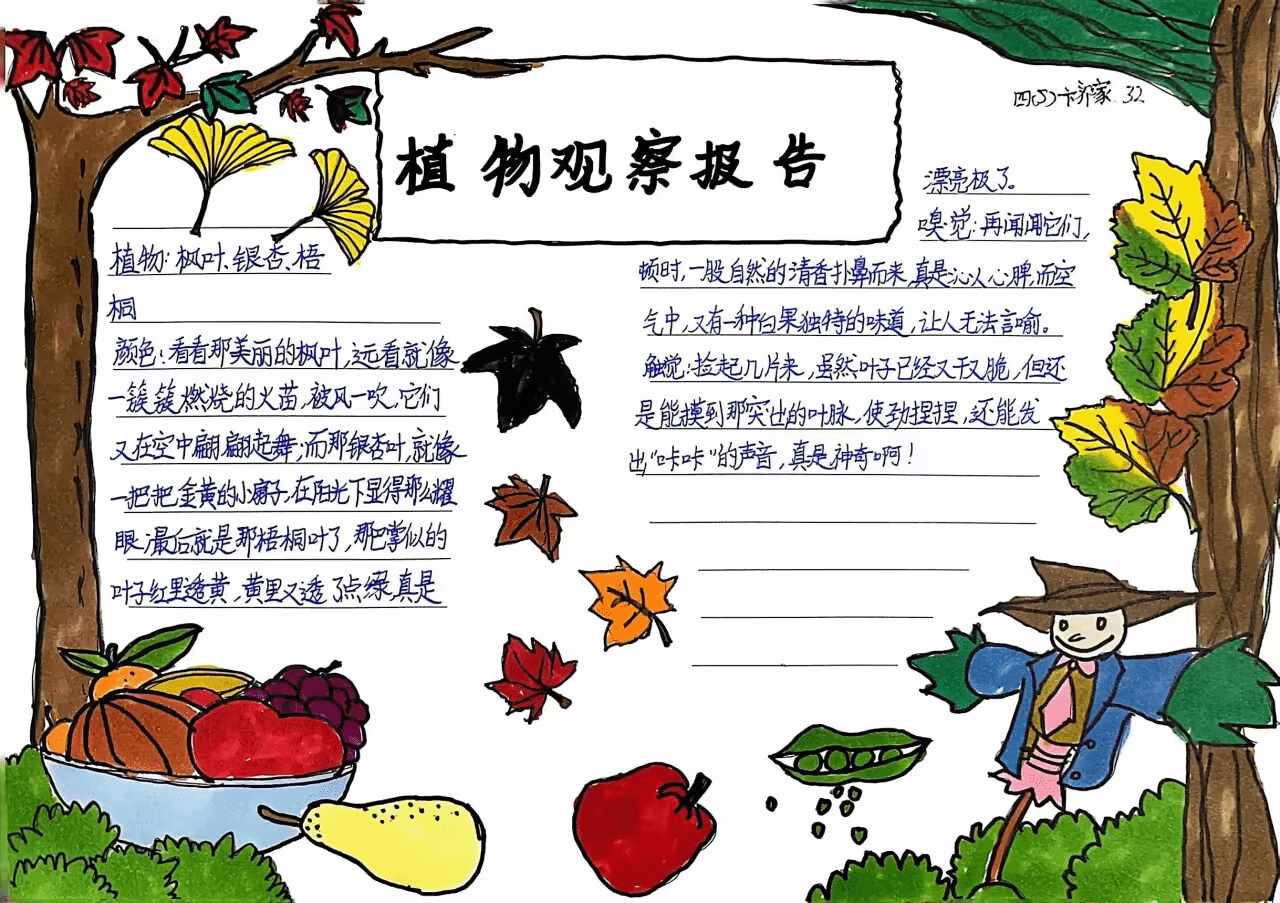 四(5)卞乔家 32
植物观察报告
植物:枫叶、银杏、梧
桐
颜色:看看那美丽的枫叶,远看就像
一簇簇燃烧的火苗,被风一吹,它们
又在空中翩翩起舞;而那银杏叶,就像
一把把金黄的小扇子,在阳光下显得那么耀
眼;最后就是那梧桐叶了,那巴掌似的
叶子红里透黄,黄里又透了点绿,真是
漂亮极了。
嗅觉:再闻闻它们,
顿时,一股自然的清香扑鼻而来,真是沁人心脾,而空
气中,又有一种白果独特的味道,让人无法言喻。
触觉:捡起几片来,虽然叶子已经又干又脆,但还
是能摸到那突出的叶脉,使劲捏捏,还能发
出“咔咔”的声音,真是神奇啊!